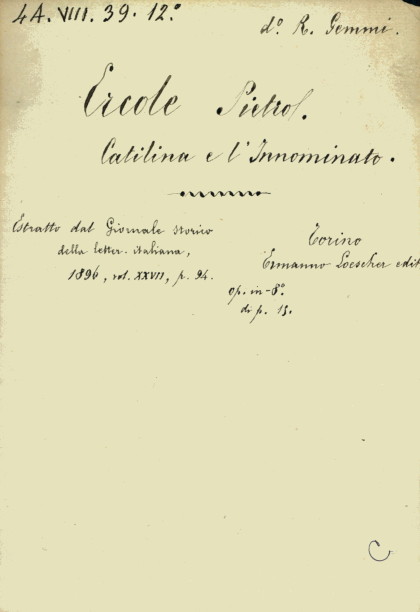 4A. VIII. 39. 12.°
d.° R. Gemmi.
Ercole Pietro.
Catilina e l'Innominato.
Estratto dal Giornale storico
della letter. italiana,
1896, vol. XXVII, p. 94.
Torino
Ermanno Loescher edit
op. in-8.°
di p. 15.
C